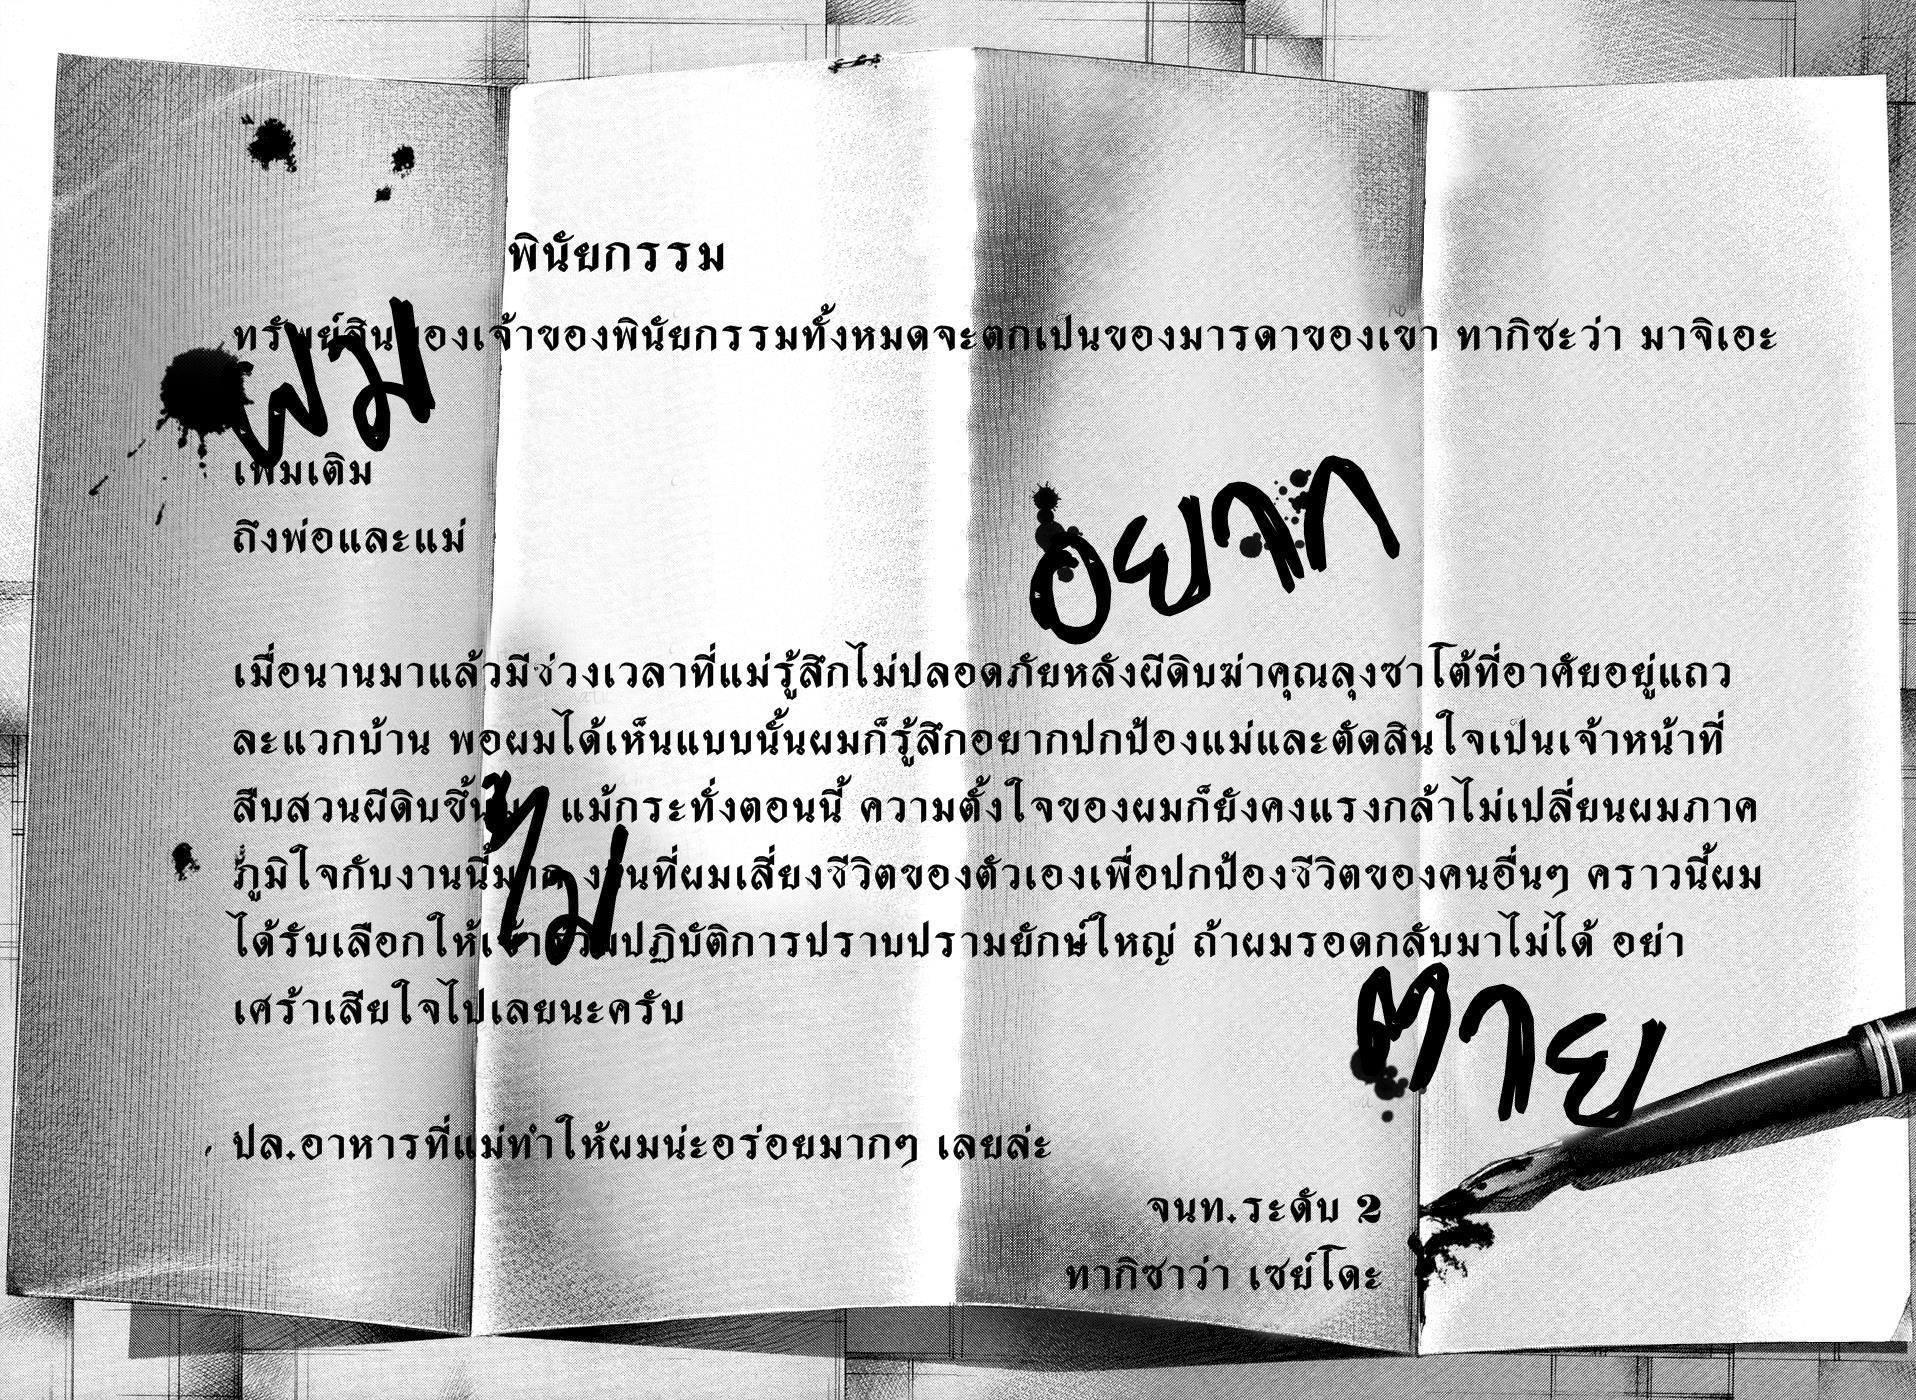 พินัยกรรม
ทรัพย์สินของเจ้าของพินัยกรรมทั้งหมดจะตกเป็นของมารดาของเขา ทากิซะว่า มาจิเอะ
ผม
เพิ่มเติม
อยาก
ถึงพ่อและแม่
เมื่อนานมาแล้วมีช่วงเวลาที่แม่รู้สึกไม่ปลอดภัยหลังผีดิบฆ่าคุณลุงซาโต้ที่อาศัยอยู่แถว
ละแวกบ้าน พอผมได้เห็นแบบนั้นผมก็รู้สึกอยากปกป้องแม่และตัดสินใจเป็นเจ้าหน้าที่
สืบสวนผีดิบขึ้นมา แม้กระทั่งตอนนี้ ความตั้งใจของผมก็ยังคงแรงกล้าไม่เปลี่ยนผมภาค
ภูมิใจกับงานนี้มาก งานที่ผมเสี่ยงชีวิตของตัวเองเพื่อปกป้องชีวิตของคนอื่นๆ คราวนี้ผม
ไม่
ได้รับเลือกให้เข้าร่วมปฏิบัติการปราบปรามยักษ์ใหญ่ ถ้าผมรอดกลับมาไม่ได้ อย่า
เศร้าเสียใจไปเลยนะครับ
ตาย
ปล.อาหารที่แม่ทำให้ผมน่ะอร่อยมากๆ เลยล่ะ
จนท.ระดับ 2
ทากิซาว่า เซย์โดะ